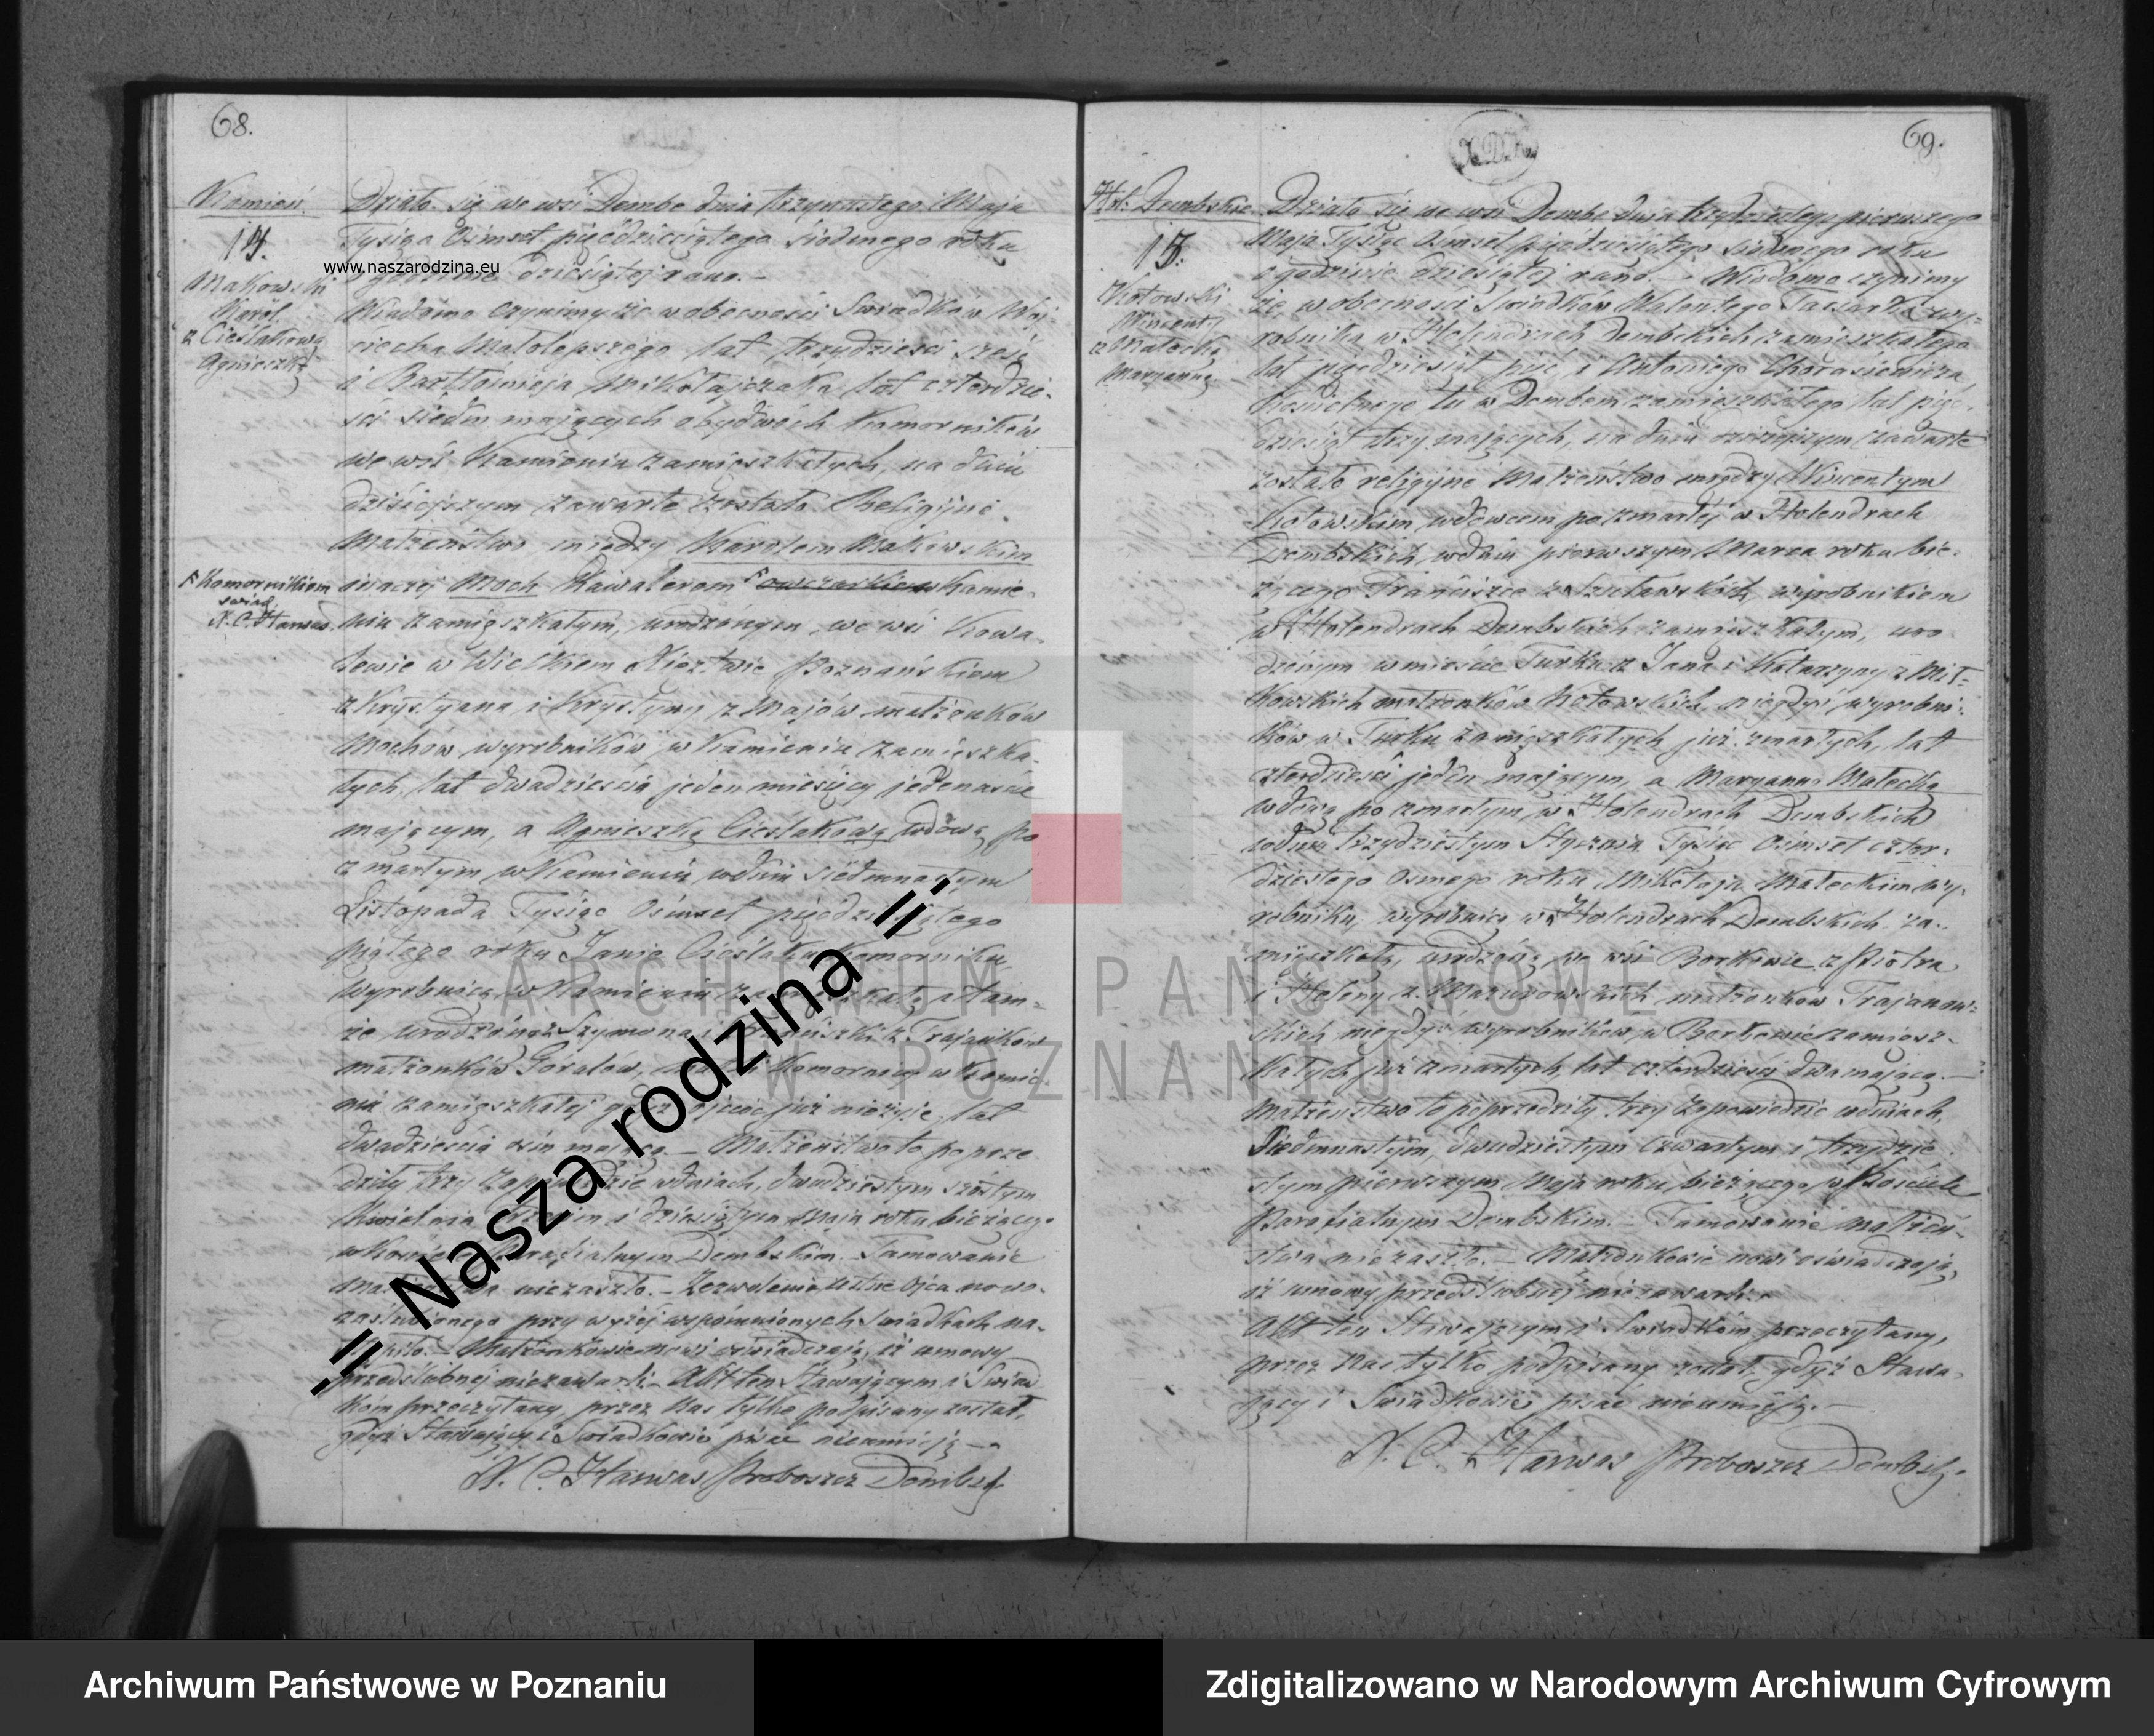 68.
Kamień.
14.
Makowski
Karól
z Cieślakową
Agnieszką
Działo się we wsi Dembe dnia trzynastego Maja
Tysiąc Ośmset pięćdziesiątego siódmego roku
www.naszarodzina.eu
o godzinie dziesiątej rano. –
Wiadomo czynimy że w obecności Świadków Woj-
ciecha Małolepszego lat trzydzieści sześć
i Bartłomieja Mikołajczaka lat czterdzie-
ści siedm mających obydwóch Komorników
we wsi Kamieniu zamieszkałych, na dniu
dzisiejszym zawarte zostało Religijne
Małżeństwo między Karolem Makowskim
inaczej Moch Kawalerem owczarkiem w Kamie-
Komornikiem
świad.
K. C. Hanwas
niu zamięszkałym, urodzonym we wsi Kowa-
lewie w Wielkiem Księztwie Poznańskiem
z Krystyana i Krystyny z Majów małżonków
Mochów wyrobników w Kamieniu zamieszka-
łych, lat dwadzieścia jeden miesięcy jedenaście
mającym, a Agnieszką Cieślakową wdową po
zmarłym w Kamieniu w dniu siedmnastym
Listopada Tysiąc Ośmset pięćdziesiątego
piątego roku Janie Cieślaku Komorniku,
wyrobnicą w Kamieniu zamieszkałą i tam-
że urodzoną z Szymona i Franciszki z Trajaników
małżonków Góralów, Komornicy w Kamie-
niu zamięszkałej gdyż ojciec już nieżyje, lat
dwadzieścia ośm mającą. – Małżeństwo to poprze-
dziły trzy Zapowiedzie w dniach, dwudziestym szóstym
Kwietnia trzecim i dziesiątym Maja roku bieżącego
w Kościele Parafialnym Dembskim. Tamowanie
Małżeństwa niezaszło. – Zezwolenie ustne Ojca nowo-
zaślubionego przy wyżej wspomnionych Świadkach na-
stąpiło. – Małżonkowie nowi oświadczają, iż umowy
przedślubnej niezawarli. – Akt ten Stawającym i Świad-
kom przeczytany, przez Nas tylko podpisany został,
gdyż Stawający i Świadkowie pisać nieumieją. –
K. C. Hanwas Proboszcz Dembski
69.
Hol. Dembskie
15.
Kotowski
Wincenty
z Małecką
Maryanną
Działo się we wsi Dembe dnia trzydziestego pierwszego
Maja Tysiąc Ośmset pięćdziesiątego siódmego roku
o godzinie dziesiątej rano. – Wiadomo czynimy
że w obecności Świadków Walentego wy-
robnika w Holendrach Dembskich zamieszkałego
lat pięćdziesiąt pięć i Antoniego Charasiewicza
Kościelnego tu w Dembem zamieszkałego lat pięć-
dziesiąt trzy mających, na dniu dzisiejszym zawarte
zostało religijne Małżeństwo między Wincentym
Kotowskim wdowcem po zmarłej w Holendrach
Dembskich w dniu pierwszym Marca roku bie-
żącego Franciszce z Szuławskich, wyrobnikiem
w Holendrach Dembskich zamieszkałym, uro-
dzonym w mieście Turku z Jana i Katarzyny z Mił-
kowskich małżonków Kotowskich, niegdyś wyrobni-
ków w Turku zamięszkałych już zmarłych, lat
czterdzieści jeden mającym, a Maryanną Małecką
wdową po zmarłym w Holendrach Dembskich
w dniu trzydziestym Stycznia Tysiąc Ośmset czter-
dziestego ósmego roku Mikołaju Małeckim wy-
robniku, wyrobnicą w Holendrach Dembskich za-
mięszkałą, urodzoną we wsi Borkowie z Piotra
i Heleny z Mazurowskich małżonków Trajanow-
skich niegdyś wyrobników w Borkowie zamiesz-
kałych już zmarłych, lat czterdzieści dwa mającą. –
Małżeństwo to poprzedziły trzy Zapowiedzie w dniach,
Siedmnastym, dwudziestym czwartym i trzydzie-
stym pierwszym Maja roku bieżącego w Kościele
Parafialnym Dembskim. – Tamowanie Małżeń-
stwa niezaszło. – Małżonkowie nowi oświadczają,
iż umowy przedślubnej niezawarli. –
Akt ten Stawającym i Świadkom przeczytany,
przez Nas tylko podpisany został, gdyż Stawa-
jący i Świadkowie pisać nieumieją. –
K. C. Hanwas Proboszcz Dembski
.:: Nasza rodzina ::.
ARCHIWUM PAŃSTWOWE
W POZNANIU
Archiwum Państwowe w Poznaniu
Zdigitalizowano w Narodowym Archiwum Cyfrowym